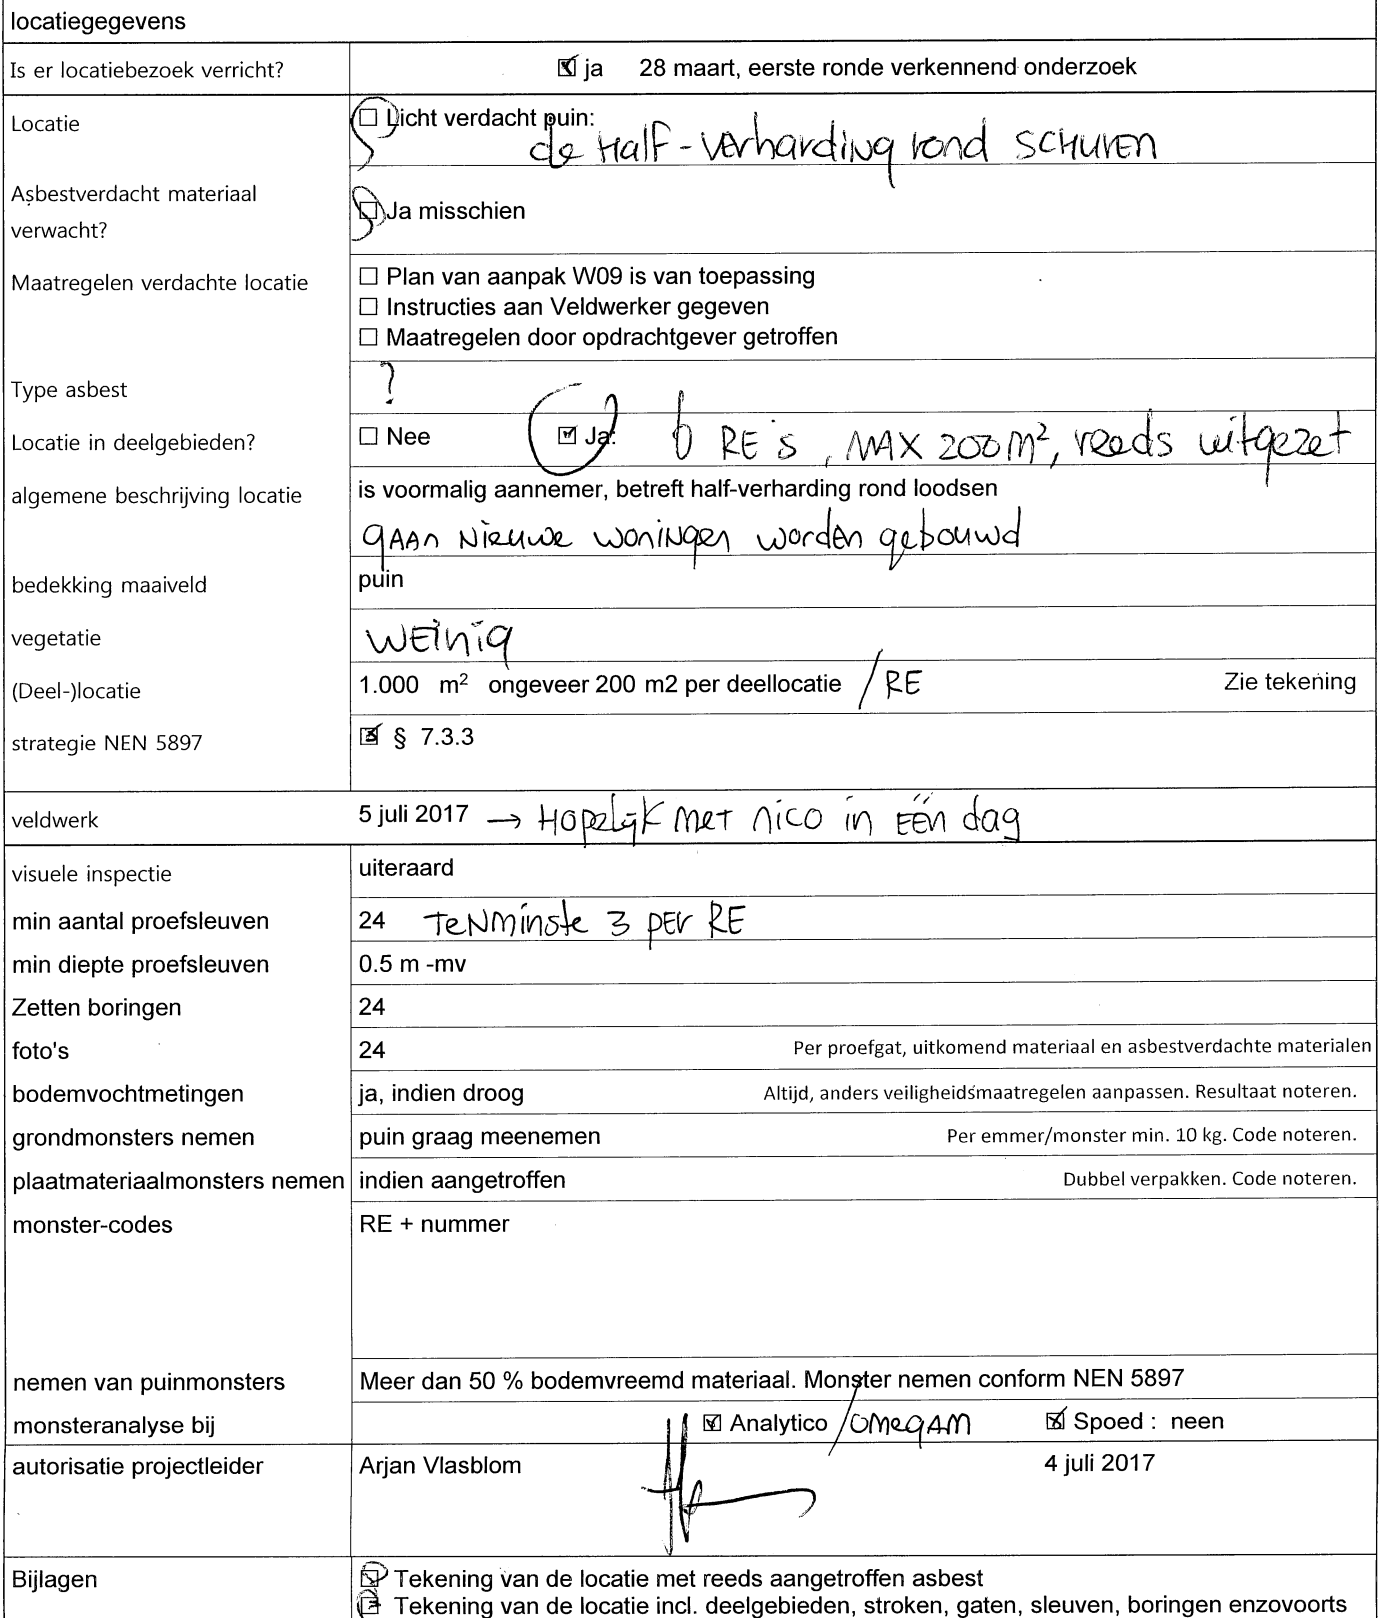 locatiegegevens
Is er locatiebezoek verricht? ☒ ja 28 maart, eerste ronde verkennend onderzoek
Locatie ☐ Licht verdacht puin:
de Half-verharding rond schuren
Asbestverdacht materiaal
verwacht? ☐ Ja misschien
Maatregelen verdachte locatie ☐ Plan van aanpak W09 is van toepassing
☐ Instructies aan Veldwerker gegeven
☐ Maatregelen door opdrachtgever getroffen
Type asbest ?
Locatie in deelgebieden? ☐ Nee ☑ Ja: 6 RE's, MAX 200 m², reeds uitgezet
algemene beschrijving locatie is voormalig aannemer, betreft half-verharding rond loodsen
gaan nieuwe woningen worden gebouwd
bedekking maaiveld puin
vegetatie weinig
(Deel-)locatie 1.000 m² ongeveer 200 m2 per deellocatie / RE Zie tekening
strategie NEN 5897 ☒ § 7.3.3
veldwerk 5 juli 2017 → Hopelijk met nico in één dag
visuele inspectie uiteraard
min aantal proefsleuven 24 Tenminste 3 per RE
min diepte proefsleuven 0.5 m -mv
Zetten boringen 24
foto's 24 Per proefgat, uitkomend materiaal en asbestverdachte materialen
bodemvochtmetingen ja, indien droog Altijd, anders veiligheidsmaatregelen aanpassen. Resultaat noteren.
grondmonsters nemen puin graag meenemen Per emmer/monster min. 10 kg. Code noteren.
plaatmateriaalmonsters nemen indien aangetroffen Dubbel verpakken. Code noteren.
monster-codes RE + nummer
nemen van puinmonsters Meer dan 50 % bodemvreemd materiaal. Monster nemen conform NEN 5897
monsteranalyse bij ☑ Analytico / Omegam ☒ Spoed : neen
autorisatie projectleider Arjan Vlasblom 4 juli 2017
Bijlagen ☑ Tekening van de locatie met reeds aangetroffen asbest
☒ Tekening van de locatie incl. deelgebieden, stroken, gaten, sleuven, boringen enzovoorts